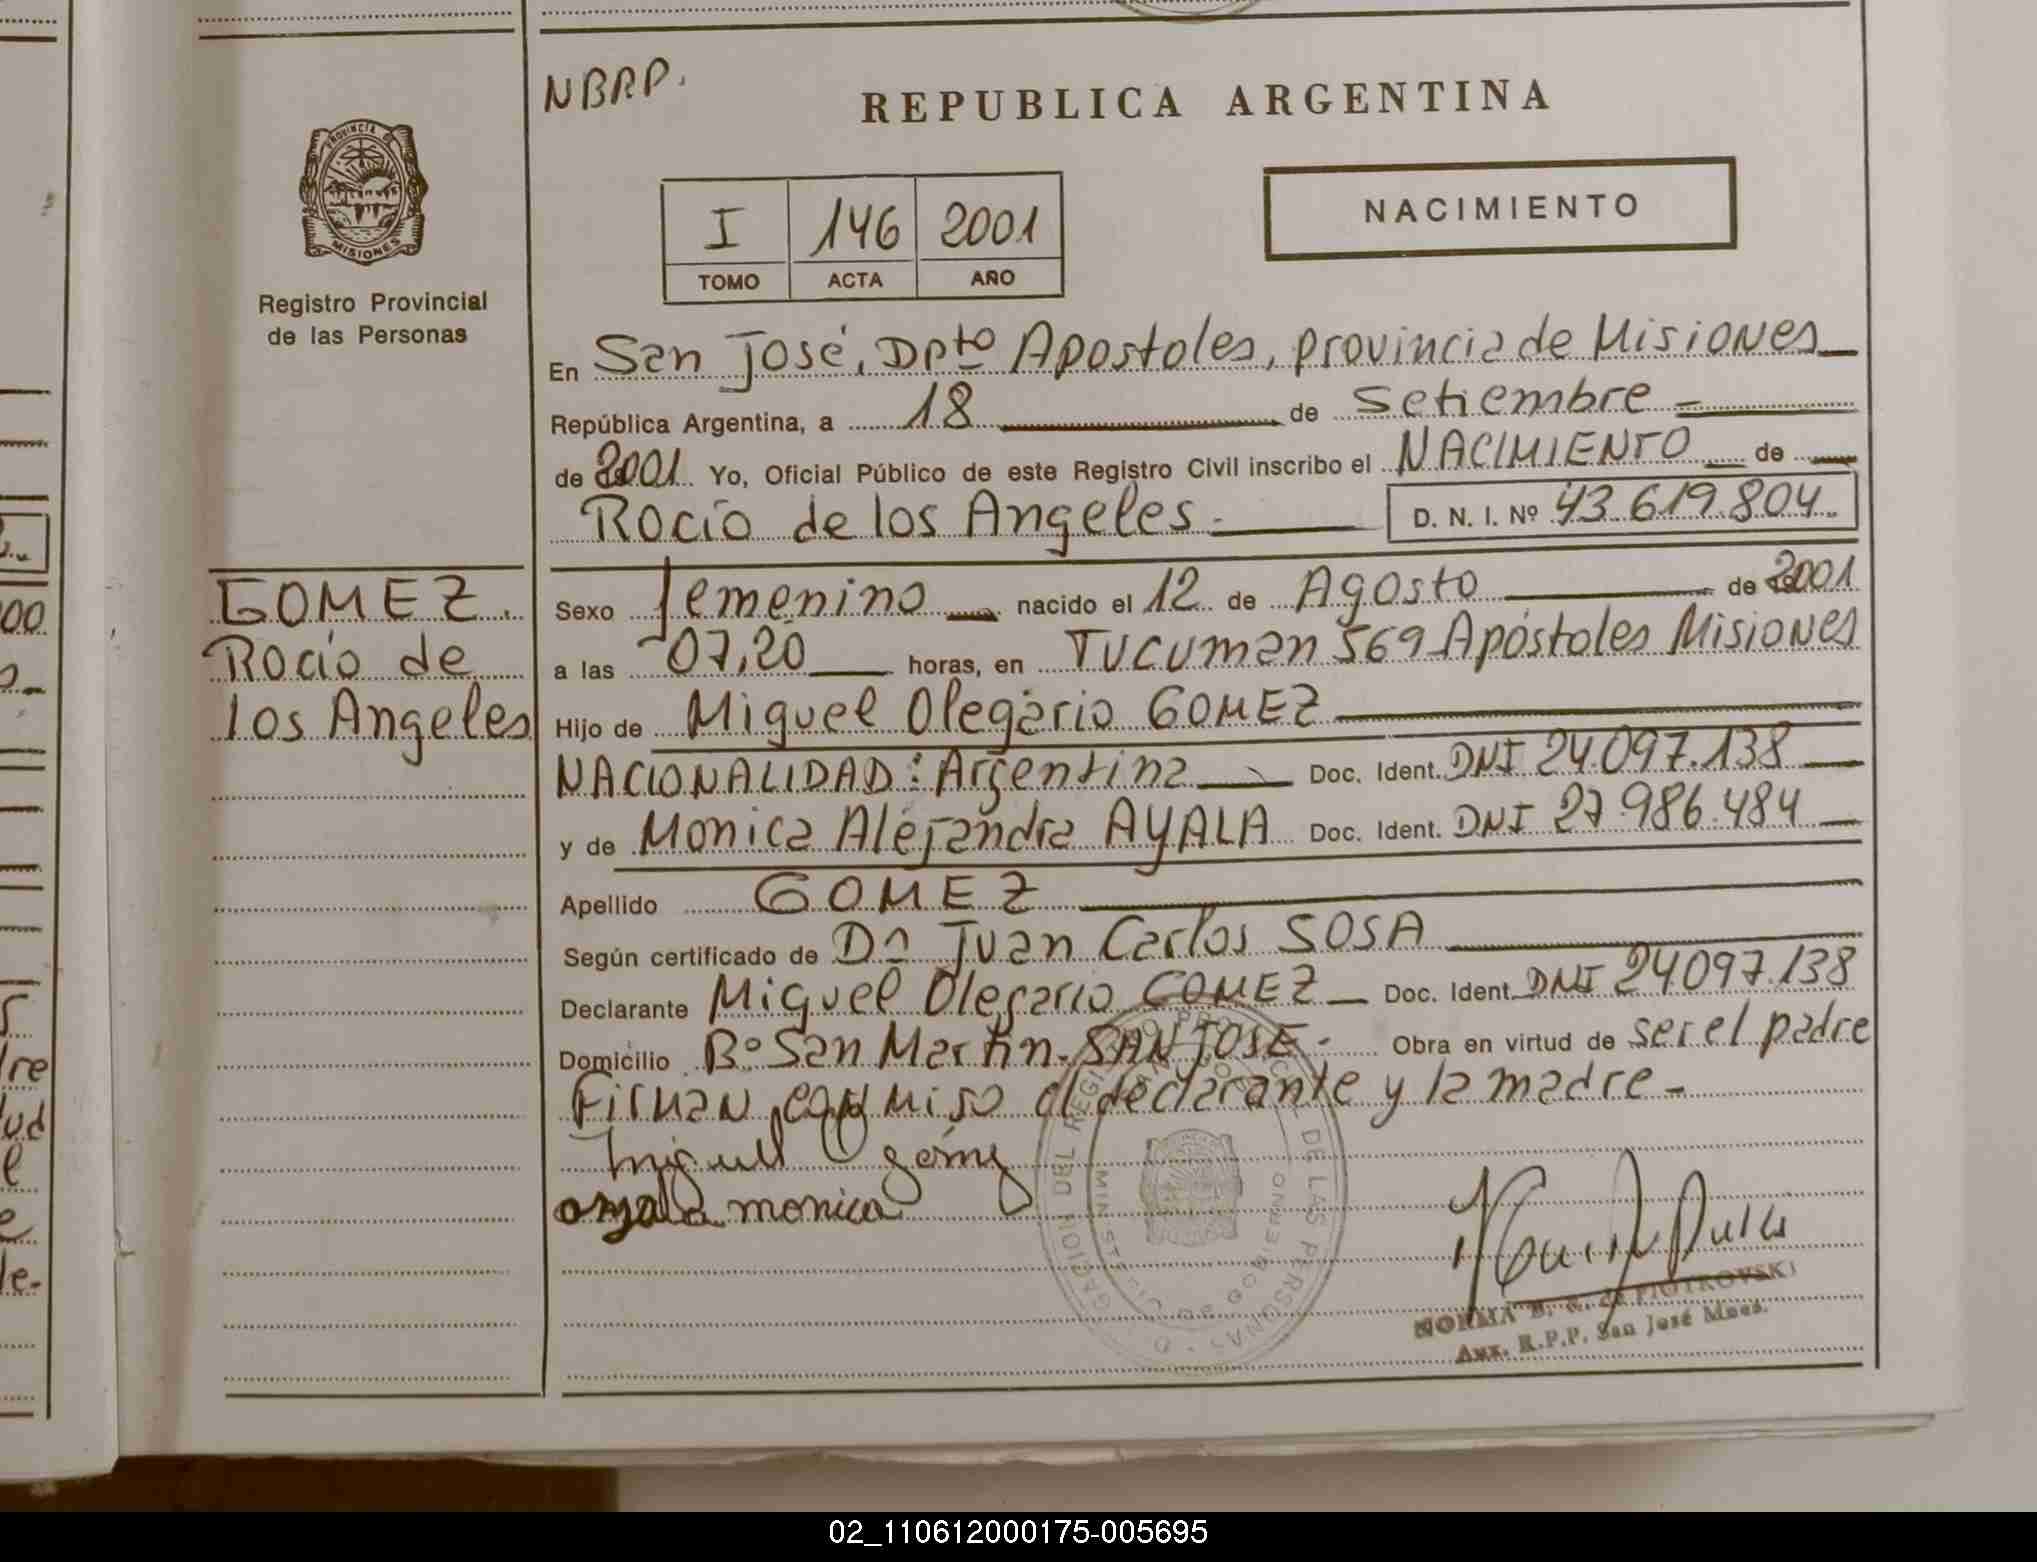 NBRP.
REPUBLICA ARGENTINA
PROVINCIA DE
MISIONES
Registro Provincial
de las Personas
I 146 2001
TOMO ACTA AÑO
NACIMIENTO
En San José, Dpto Apostoles, provincia de Misiones
República Argentina, a 18 de Setiembre
de 2001 Yo, Oficial Público de este Registro Civil inscribo el NACIMIENTO de
Rocío de los Angeles. D. N. I. Nº 43.619.804
GOMEZ.
Rocío de
los Angeles
Sexo femenino nacido el 12 de Agosto de 2001
a las 07,20 horas, en Tucuman 569 Apóstoles Misiones
Hijo de Miguel Olegario GOMEZ
NACIONALIDAD: Argentina Doc. Ident. DNI 24.097.138
y de Monica Alejandra AYALA Doc. Ident. DNI 27.986.484
Apellido GOMEZ
Según certificado de Dn Juan Carlos SOSA
Declarante Miguel Olegario GOMEZ Doc. Ident. DNI 24097.138
Domicilio Bº San Martin. SAN JOSE. Obra en virtud de ser el padre
Firman conmigo el declarante y la madre
Miguel O gómez
ayala monica
NORMA B. R. de PIOTROVSKI
Aux. R.P.P. San José Mnes.
02_110612000175-005695